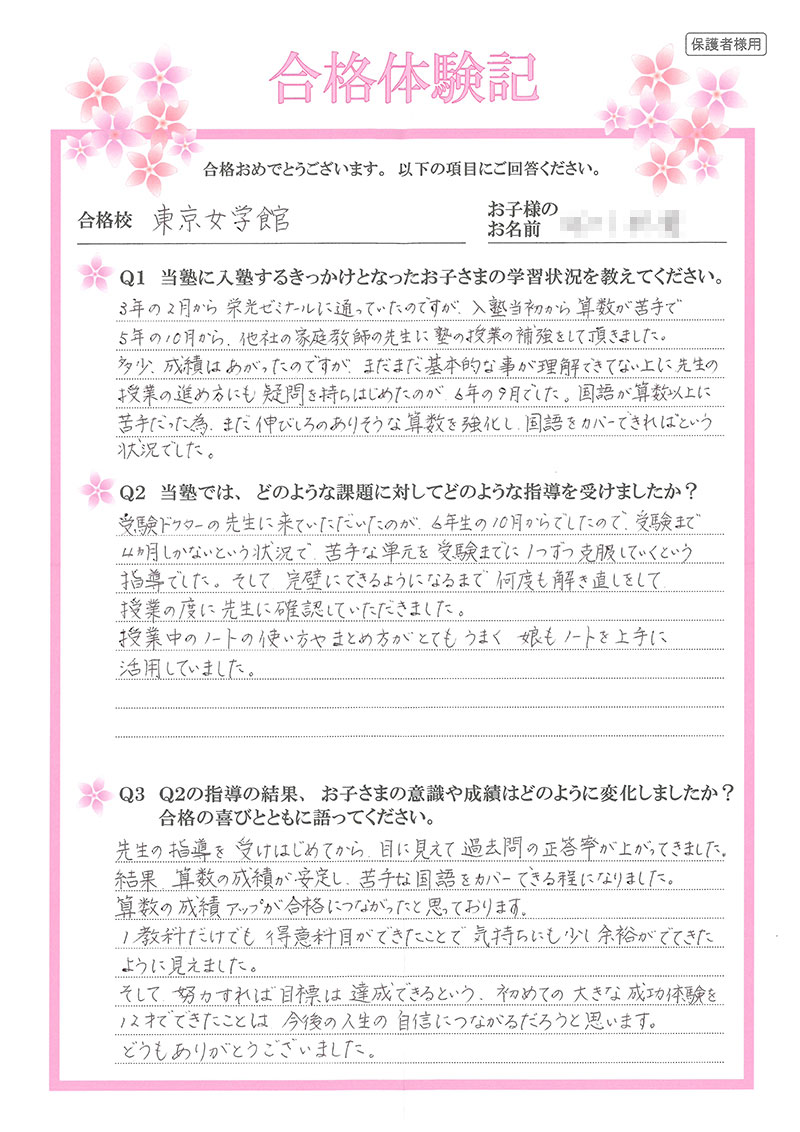 保護者様用
合格体験記
合格おめでとうございます。以下の項目にご回答ください。
合格校 東京女学館
お子様の
お名前
Q1 当塾に入塾するきっかけとなったお子さまの学習状況を教えてください。
3年の2月から栄光ゼミナールに通っていたのですが、入塾当初から算数が苦手で
5年の10月から、他社の家庭教師の先生に塾の授業の補強をして頂きました。
多少、成績はあがったのですが、まだまだ基本的な事が理解できてない上に先生の
授業の進め方にも疑問を持ちはじめたのが6年の9月でした。国語が算数以上に
苦手だった為、まだ伸びしろのありそうな算数を強化し、国語をカバーできればという
状況でした。
Q2 当塾では、どのような課題に対してどのような指導を受けましたか？
受験ドクターの先生に来ていただいたのが、6年生の10月からでしたので、受験まで
4ヵ月しかないという状況で、苦手な単元を受験までに1つずつ克服していくという
指導でした。そして 完璧にできるようになるまで何度も解き直しをして
授業の度に先生に確認していただきました。
授業中のノートの使い方やまとめ方がとてもうまく 娘もノートを上手に
活用していました。
Q3 Q2の指導の結果、お子さまの意識や成績はどのように変化しましたか？
合格の喜びとともに語ってください。
先生の指導を受けはじめてから、目に見えて過去問の正答率が上がってきました。
結果、算数の成績が安定し、苦手な国語をカバーできる程になりました。
算数の成績アップが合格につながったと思っております。
1教科だけでも得意科目ができたことで気持ちにも少し余裕がでてきた
ように見えました。
そして 努力すれば目標は達成できるという、初めての大きな成功体験を
12才でできたことは 今後の人生の自信につながるだろうと思います。
どうもありがとうございました。